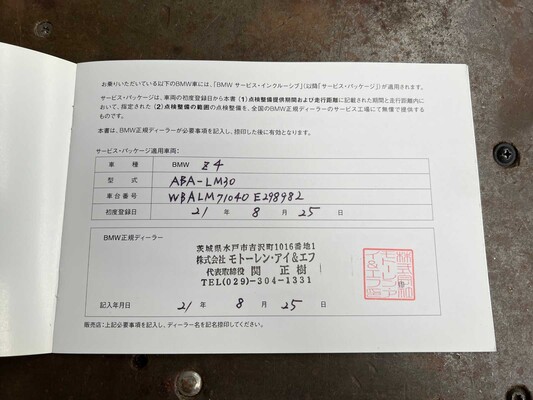 お乗りいただいている以下のBMW車には、「BMW サービス・インクルーシブ」(以降「サービス・パッケージ」)が適用されます。
サービス・パッケージは、車両の初度登録日から本書(1)点検整備提供期間および走行距離に記載された期間と走行距離内に
おいて、指定された(2)点検整備の範囲の点検整備を、全国のBMW正規ディーラーのサービス工場にて無償で提供する
ものです。
本書は、BMW正規ディーラーが必要事項を記入し、捺印した後に有効となります。
サービス・パッケージ適用車両:
車 種 BMW Z4
型 式 ABA-LM30
車台番号 WBALM71040E298982
初度登録日 21 年 8 月 25 日
BMW正規ディーラー
茨城県水戸市吉沢町1016番地1
株式会社 モトーレン・アイ&エフ
代表取締役 関 正樹
TEL(029)-304-1331
記入年月日 21 年 8 月 25 日
販売店:上記必要事項を記入し、ディーラー名を記名捺印してください。